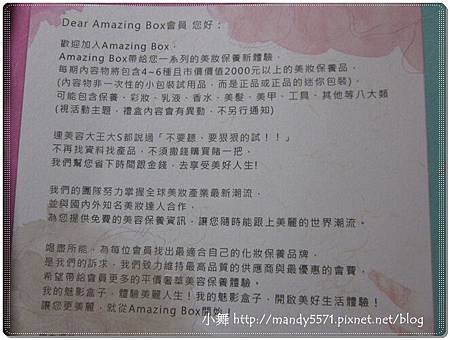 Dear Amazing Box會員 您好：
歡迎加入Amazing Box，
Amazing Box帶給您一系列的美妝保養新體驗，
每期內容物將包含4~6種且市價價值2000元以上的美妝保養品，
(內容物非一次性的小包裝試用品，而是正品或正品的迷你包裝)，
可能包含保養、彩妝、乳液、香水、美髮、美甲、工具、其他等八大類
(視活動主題，禮盒內容會有異動，不另行通知)
連美容大王大S都說過「不要聽、要狠狠的試！！」
不再找資料找產品，不須撒錢購買賭一把，
我們幫您省下時間跟金錢，去享受美好人生!
我們的團隊努力掌握全球美妝產業最新潮流，
並與國內外知名美妝達人合作，
為您提供免費的美容保養資訊，讓您隨時能跟上美麗的世界潮流。
竭盡所能，為每位會員找出最適合自己的化妝保養品牌，
是我們的訴求，我們致力維持最高品質的供應商與最優惠的會費，
希望帶給會員更多的平價奢華美容保養體驗。
我的魅影盒子，體驗美麗人生！我的魅影盒子，開啟美好生活體驗！
讓您更美麗，就從Amazing Box開始！
小舞 http://mandy5571.pixnet.net/blog